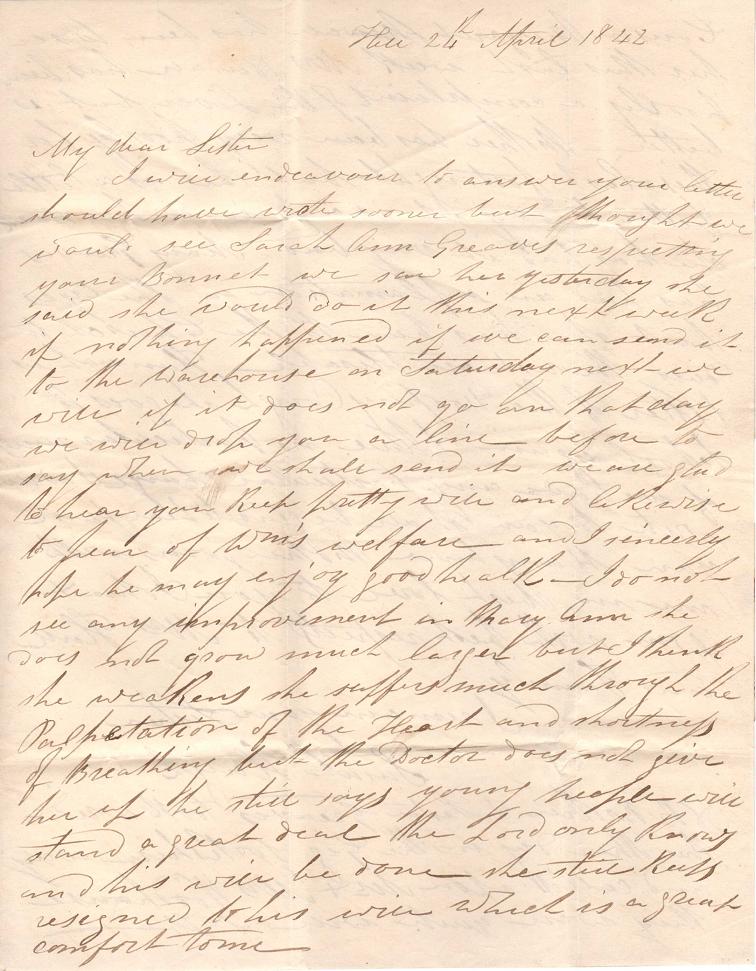 Hull 24th April 1842
My dear Sister
I will endeavour to answer your letter
should have wrote sooner but thought we
would see Sarah Ann Greaves respecting
your Bonnet we saw her yesterday she
said she would do it this next week
if nothing happened if we can send it
to the Warehouse on Saturday next we
will if it does not go on that day
we will drop you a line before to
say when we shall send it we are glad
to hear you Keep pretty well and likewise
to hear of Wm's welfare and I sincerely
hope he may enjoy good health - I do not
see any improvement in Mary Ann she
does not grow much larger but I think
she weakens she suffers much through the
Palpetation of the Heart and shortness
of Breathing but the Doctor does not give
her up he still says young people will
stand a great deal the Lord only Knows
and his will be done she still Keeps
resigned to his will which is a great
comfort to me